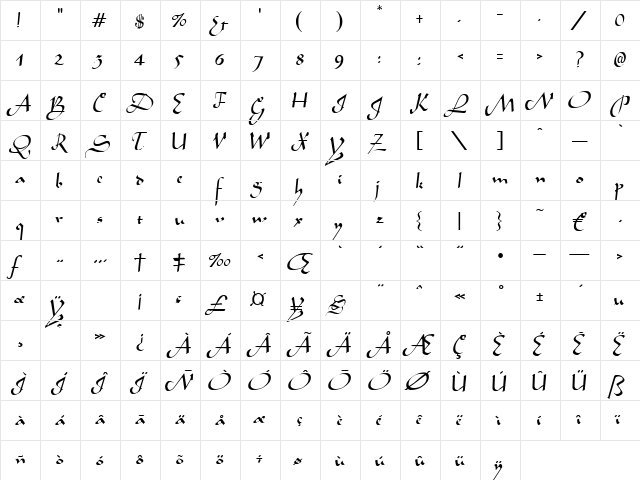 ! " # $ % & ' ( ) * + , - . / 0
1 2 3 4 5 6 7 8 9 : ; < = > ? @
A B C D E F G H I J K L M N O P
Q R S T U V W X Y Z [ \ ] ^ _ `
a b c d e f g h i j k l m n o p
q r s t u v w x y z { | } ~ € ,
ƒ „ … † ‡ ‰ ‹ Œ ‘ ’ “ ” • – — ›
œ Ÿ ¡ ¢ £ ¤ ¥ § ¨ ª « ° ± ´ µ
¸ » ¿ À Á Â Ã Ä Å Æ Ç È É Ê Ë
Ì Í Î Ï Ñ Ò Ó Ô Õ Ö Ø Ù Ú Û Ü ß
à á â ã ä å æ ç è é ê ë ì í î ï
ñ ò ó ô õ ö ÷ ø ù ú û ü ÿ